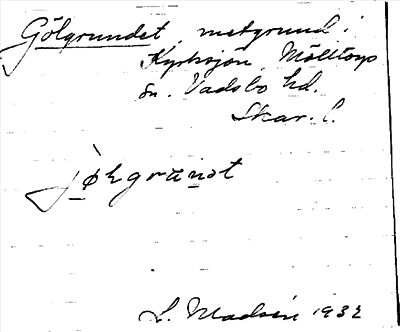 Gölgrundet, metgrund i
Kyrksjön, Mölltorps
sn. Vadsbo hd.
Skar. l.
L. Madsén 1932